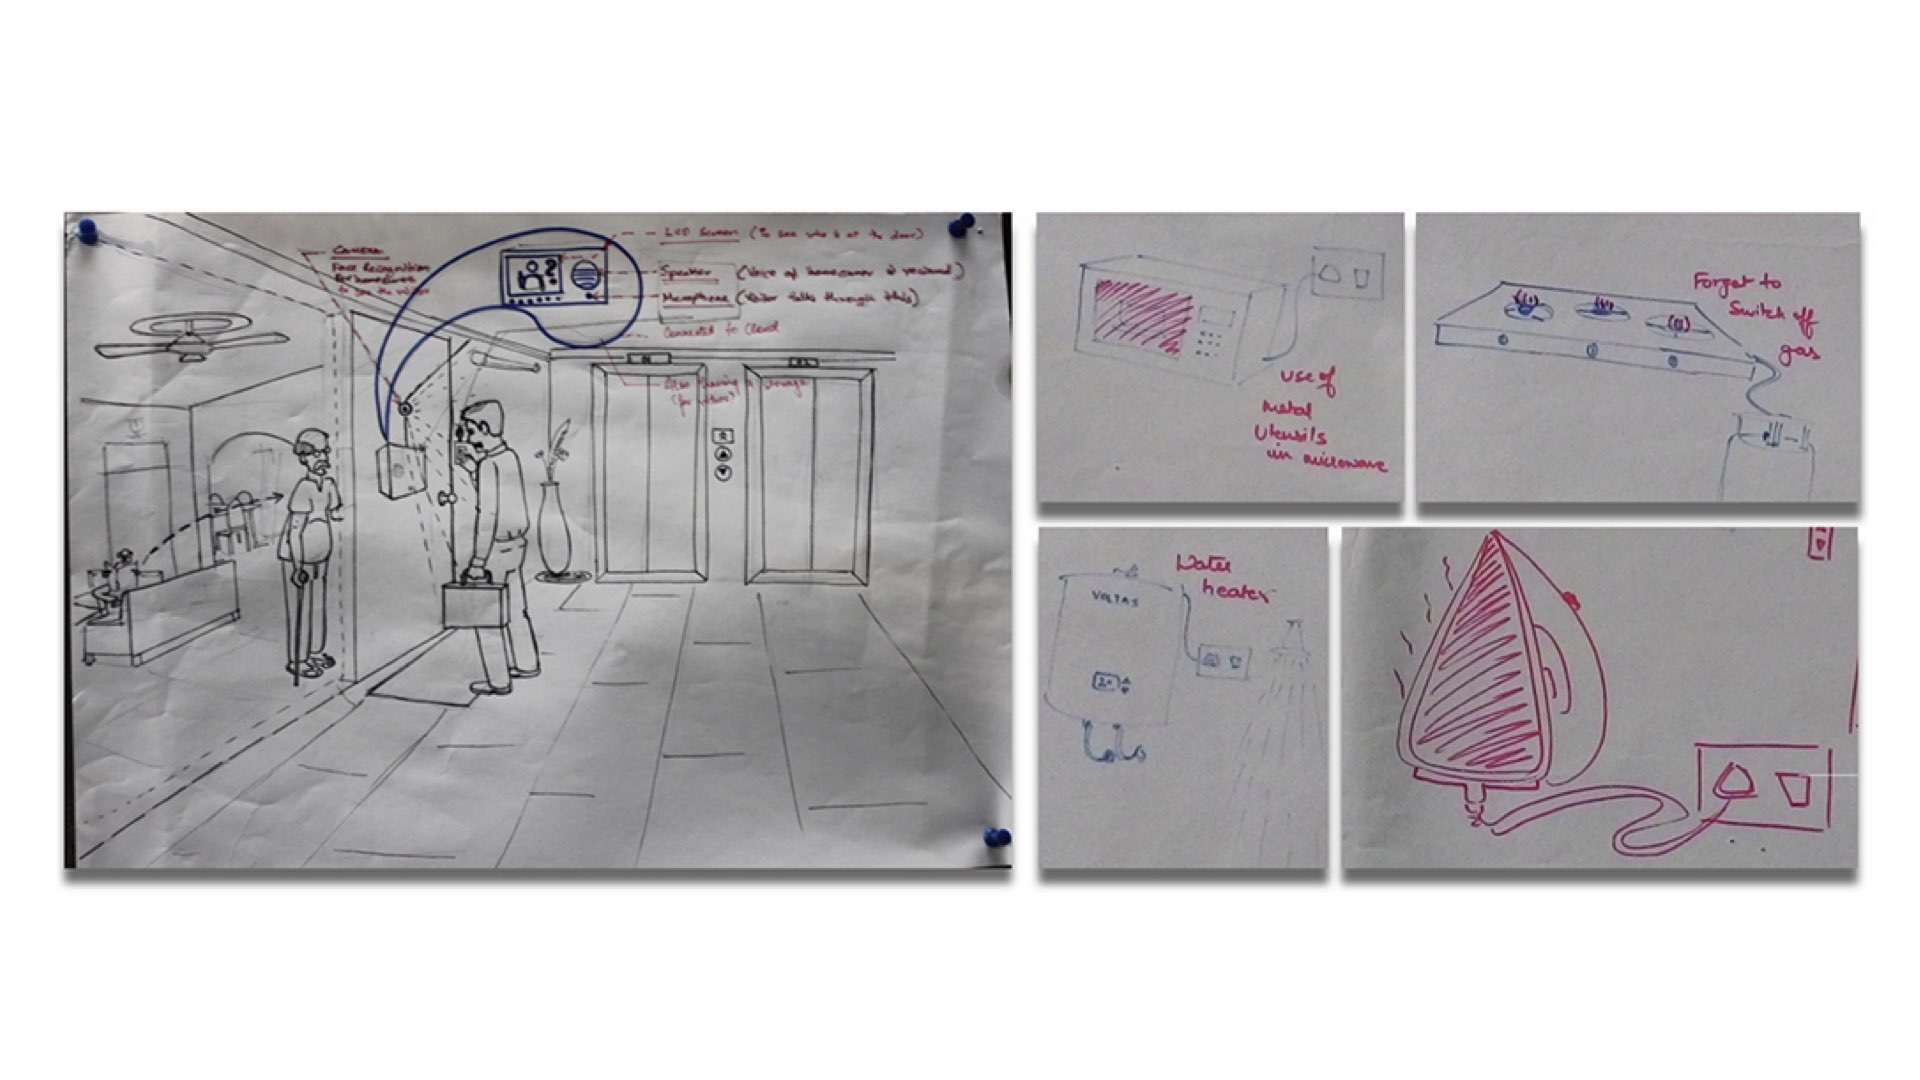 CAMERA
Face Recognition
for homeowners
to see the
LCD Screen (To see who is at the door)
Speaker (Voice of homeowner is received)
Microphone (Visitor talks through this)
Connected to Cloud
use of
metal
Utensils
in microwave
Forget to
Switch off
gas
Water
heater
VOLTAS